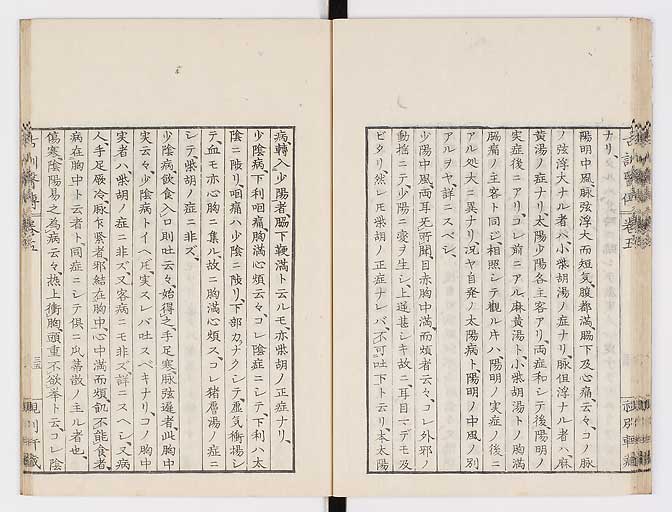 ナリ、
陽明中風脉弦浮大而短気、腹都満、脇下及心痛云々、コノ脉
ノ弦浮大ナル者ハ、小柴胡湯ノ症ナリ、脉但浮ナル者ハ、麻
黄湯ノ症ナリ、太陽少陽各主客アリ、両症和シテ後、陽明ノ
実症後ニアリ、前ニアル麻黄湯ト、小柴胡湯トノ胸満
脇痛ノ主客ト同ジ、相照シテ観ル片ハ、陽明ノ実症ノ後ニ
アル処大ニ異ナリ、况ヤ自発ノ太陽病ト、陽明ノ中風ノ別
アルヲヤ、詳ニスベシ、
少陽中風、両耳无所聞、目赤胸中満、而煩者云々、コレ外邪ノ
動揺ニテ、少陽ニ変ヲ生シ、上逆甚シキ故ニ、耳目ニデモ及
ビタリ、然レ𪜈柴胡ノ正症ナレバ、不可吐下ト云リ、本太陽
病轉入少陽者、脇下鞕満ト云ルモ、亦柴胡ノ正症ナリ、
少陰病下利咽痛、胸満心煩云々、コレ陰症ニシテ下利ハ太
陰ニ陟リ、咽痛ハ少陰ニ陟リ、下部力ナクシテ虚気衝塲シ
テ、血モ亦心胸ニ集ル、故ニ胸満心煩ス、コレ猪膚湯ノ症ニ
シテ、柴胡ノ症ニ非ズ、
少陰病飲食入口則吐云々、始得之、手足寒、脉弦遅者、此胸中
実云々、少陰病トイヘ𪜈、実スレバ吐スベキナリ、コノ胸中
実者ハ、柴胡ノ症ニ非ズ、又客病ニモ非ズ、詳ニスヘシ、又病
人手足厥冷、脉乍緊者、邪結在胸中、心中満而煩、飢不能食者、
病在胸中ト云者ト、同症ニシテ倶ニ瓜蒂散ノ主ル者也、
傷寒、陰陽易之為病云々、熱上衝胸、頭重不欲挙ト云、コレ陰
三五